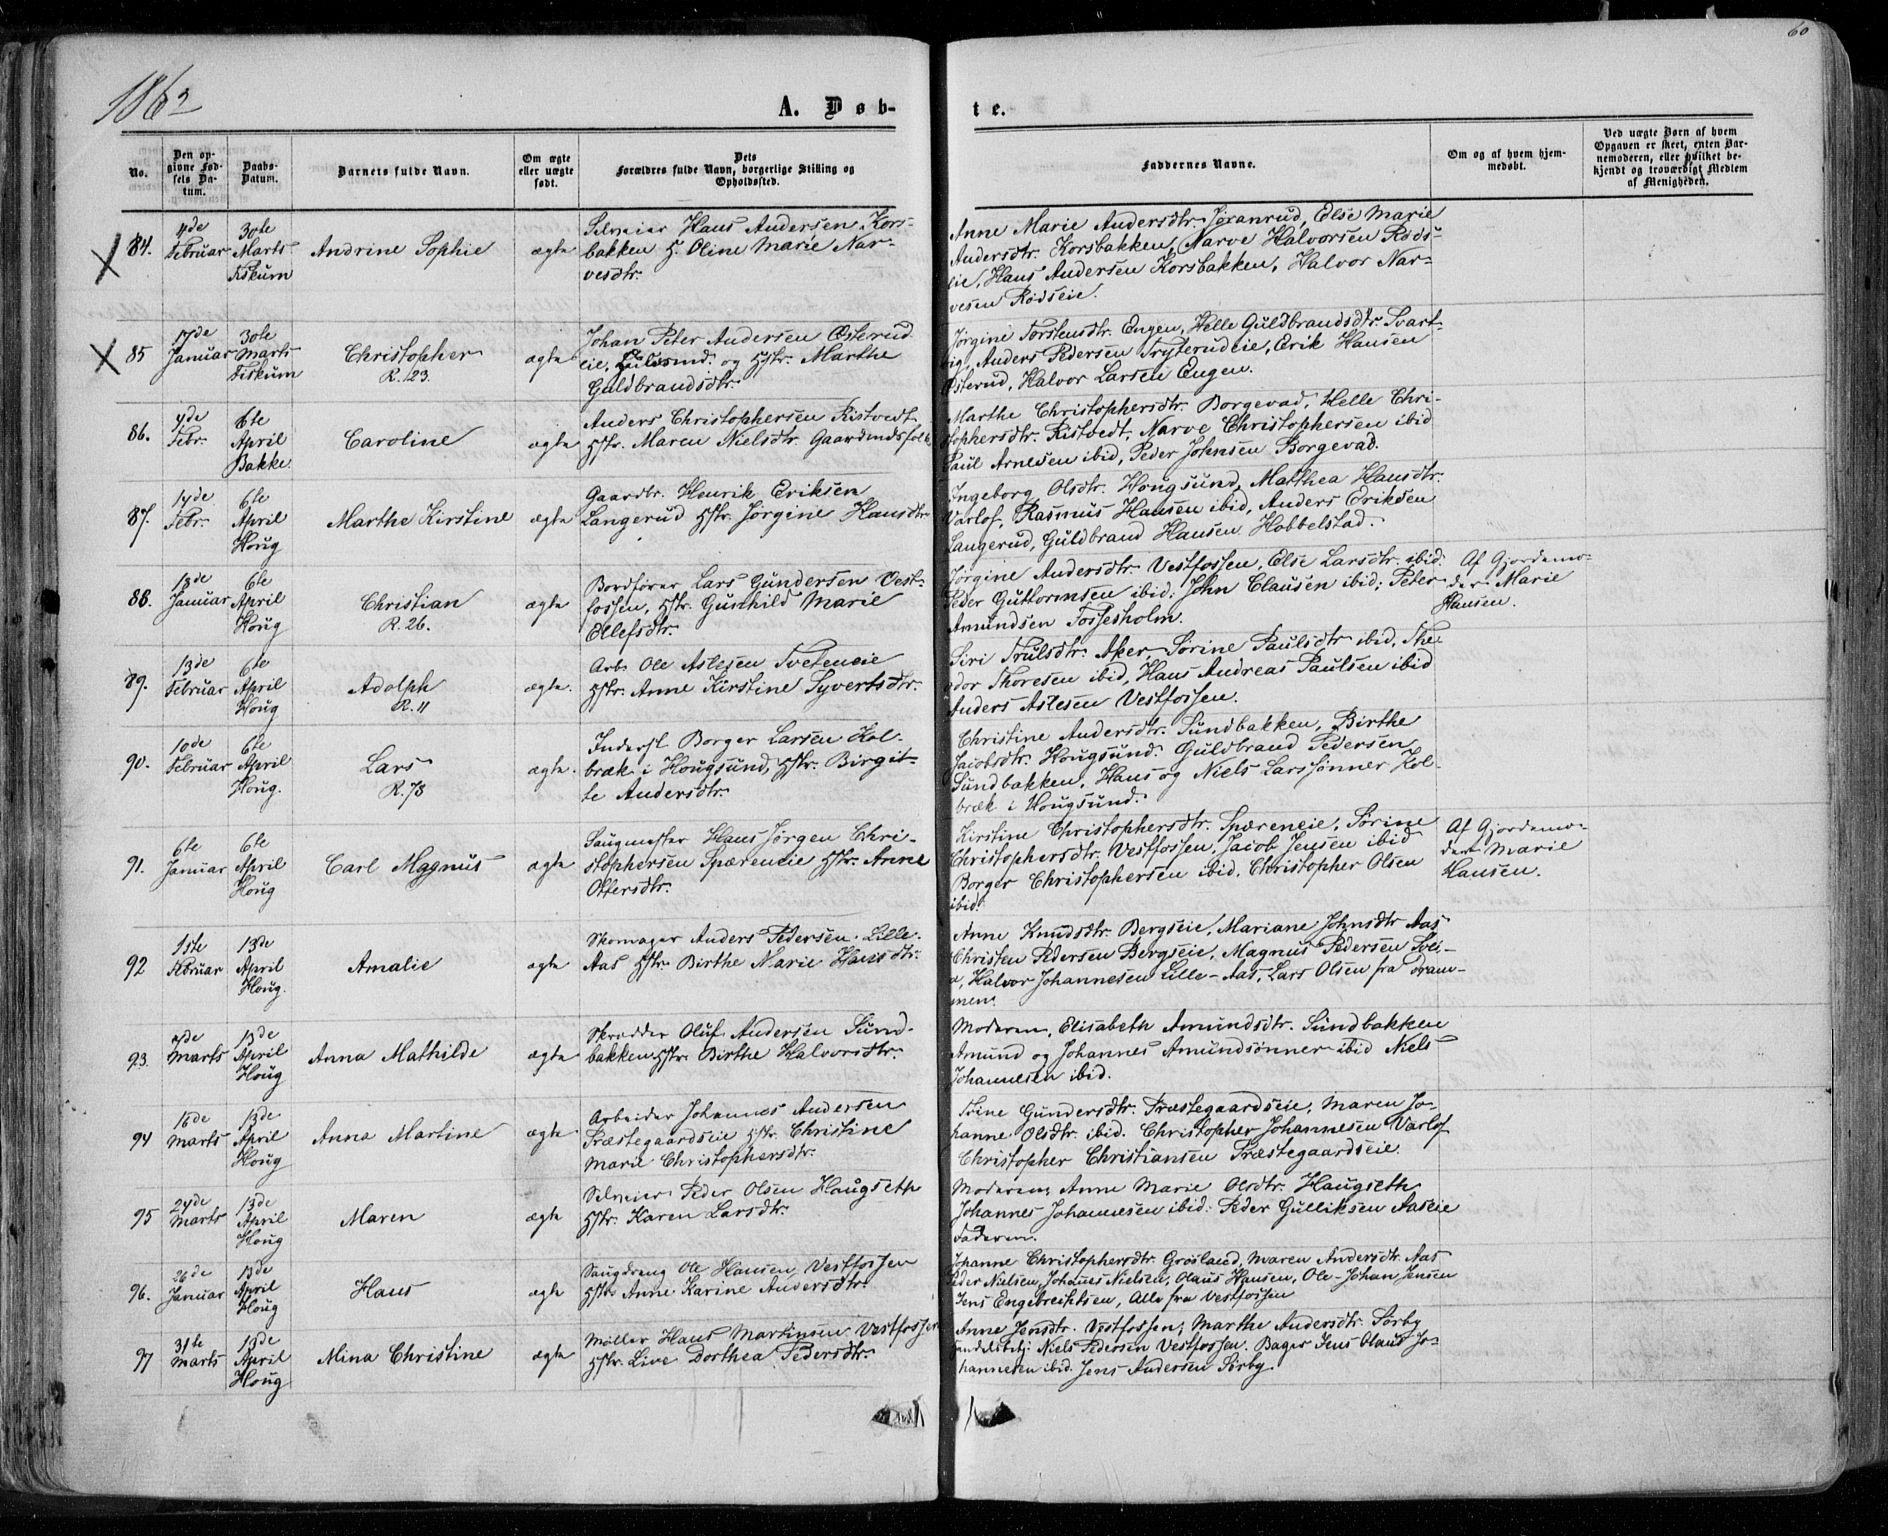 60
1862
A. Døb-
te.
No.
Den op-
givne Fød-
sels Da-
tum.
Daabs-
Datum.
Barnets fulde Navn.
Om ægte
eller uægte
født.
Dets
Forældres fulde Navn, borgerlige Stilling og
Opholdssted.
Faddernes Navne.
Om og af hvem hjem-
medøbt.
Ved uægte Børn af hvem
Opgaven er skeet, enten Bar-
nemoderen, eller hvilket be-
kjendt og troværdigt Medlem
af Menigheden.
84.
4de
Februar
30te
Marts
Fiskum
Andrine Sophie
ægte
Selveier Hans Andersen Kors-
bakken H. Oline Marie Nar-
vesdtr.
Anne Marie Andersdtr. Jøranrud, Else Marie
Andersdtr. Korsbakken, Narve Halvorsen Røds-
eie, Hans Andersen Korsbakken, Halvor Nar-
vesen Rødseie.
85
17de
Januar
30te
Marts
Fiskum
Christopher
R. 123.
ægte
Johan Peter Andersen Østerud
eie, og Hstr. Marthe
Guldbrandsdtr.
Jørgine Torstensdtr. Engen, Helle Guldbrandsdtr. Svart-
Anders Pedersen Tryterudeie, Erik Hansen
Østerud, Halvor Larsen Engen.
86.
4de
Febr.
6te
April
Bakke.
Caroline
ægte
Anders Christophersen Ristvedt
Hstr. Maren Nielsdtr. Gaardmdsfolk
Marthe Christophersdtr. Borgevad, Helle Chri-
stophersdtr. Ristvedt, Narve Christophersen ibid
Paul Arnesen ibid, Peder Johnsen Borgevad.
87.
14de
Febr.
6te
April
Houg
Marthe Kirstine
ægte
Gaardbr. Henrik Eriksen
Langerud Hstr. Jørgine Hansdtr.
Ingeborg Olsdtr. Hougsund, Mathea Hansdtr.
Varlof, Rasmus Hansen ibid, Anders Eriksen
Langerud, Guldbrand Hansen Hobbelstad.
88.
13de
Januar
6te
April
Houg
Christian
R. 26.
ægte
Bordfører Lars Gundersen Vest-
fossen, Hstr. Gunhild Marie
Ellefsdtr.
Jørgine Andersdtr. Vestfossen, Else Larsdtr. ibid.
Peder Guttormsen ibid. John Clausen ibid, Peter
Amundsen Fossesholm.
Af Gjordemo-
der Marie
Hansen.
89.
13de
Februar
6te
April
Houg
Adolph
R. 11
ægte.
Arb. Ole Aslesen Tveteneie
Hstr. Anne Kirstine Syvertsdtr.
Siri Trulsdtr. Aker, Sørine Paulsdtr ibid, The-
odor Thoresen ibid, Hans Andreas Paulsen ibid
Anders Aslesen Vestfossen.
90.
10de
Februar
6te
April
Houg.
Lars
R. 73
ægte.
Inderst Borger Larsen Kol-
bræk i Hougsund, Hstr. Birgit-
te Andersdtr.
Christine Andersdtr. Sundbakken, Birthe
Jacobsdtr. Hougsund. Guldbrand Pedersen
Sundbakken, Hans og Niels Larssønner Kol-
bræk i Hougsund.
91.
6te
Januar
6te
April
Houg
Carl Magnus
ægte
Saugmester Hans Jørgen Chri-
stophersen Spæreneie Hstr. Anne
Ottersdtr.
Kirstine Christophersdtr. Spæreneie, Sørine
Christophersdtr. Vestfossen, Jacob Jensen ibid
Borger Christophersen ibid. Christopher Olsen
ibid.
Af Gjordemo-
der Marie
Hansen.
92
1ste
Februar
13de
April
Houg.
Amalie
ægte
Skomager Anders Pedersen Lille-
Aas Hstr. Birthe Marie Hansdtr.
Anne Knudsdtr. Bergseie, Mariane Johnsdtr Aas
Christen Pedersen Bergseie, Magnus Pedersen Svei-
a, Halvor Johannesen Lille-Aas, Lars Olsen fra Dram-
men.
93.
2de
Marts
13de
April
Houg
Anna Mathilde
ægte
Skrædder Oluf Andersen Sund-
bakken Hstr. Birthe Halvorsdtr.
Moderen, Elisabeth Amundsdtr. Sundbakken
Amund og Johannes Amundsønner ibid Niels
Johannesen ibid.
94
16de
Marts
13de
April
Houg
Anna Martine
ægte
Arbeider Johannes Andersen
Præstegaardseie Hstr. Christine
Marie Christophersdtr.
Trine Gundersdtr. Præstegaardseie, Maren Jo-
hanne Olsdtr. ibid. Christopher Johannesen Varlof
Christopher Christiansen Præstegaardseie.
95
24de
Marts
13de
April
Houg
Maren
ægte
Selveier Peder Olsen Hougseth
Hstr. Karen Larsdtr.
Moderen, Anne Marie Olsdtr. Haugseth
Johannes Johannesen ibid. Peder Gulliksen Aaseie
Faderen.
96.
26de
Januar
13de
April
Houg
Hans
ægte
Saugdreng Ole Hansen Vestfossen
Hstr. Anne Karine Andersdtr.
Johanne Christophersdtr. Grøsland, Maren Andersdtr. Aas
Peder Nielsen, Johannes Nielsen, Olaus Hansen, Ole Johan Jensen
Jens Engebrechtsen, Alle fra Vestfossen
97
31te
Marts
13de
April
Houg
Mina Christine
ægte
Møller Hans Martinsen Vestfossen
Hstr. Live Dorthea Pedersdtr.
Anne Jensdtr. Vestfossen, Marthe Andersdtr. Sørby
Handelsbetj. Niels Pedersen Vestfossen. Bager Jens Olaus Jo-
hannesen ibid. Jens Andersen Sørby